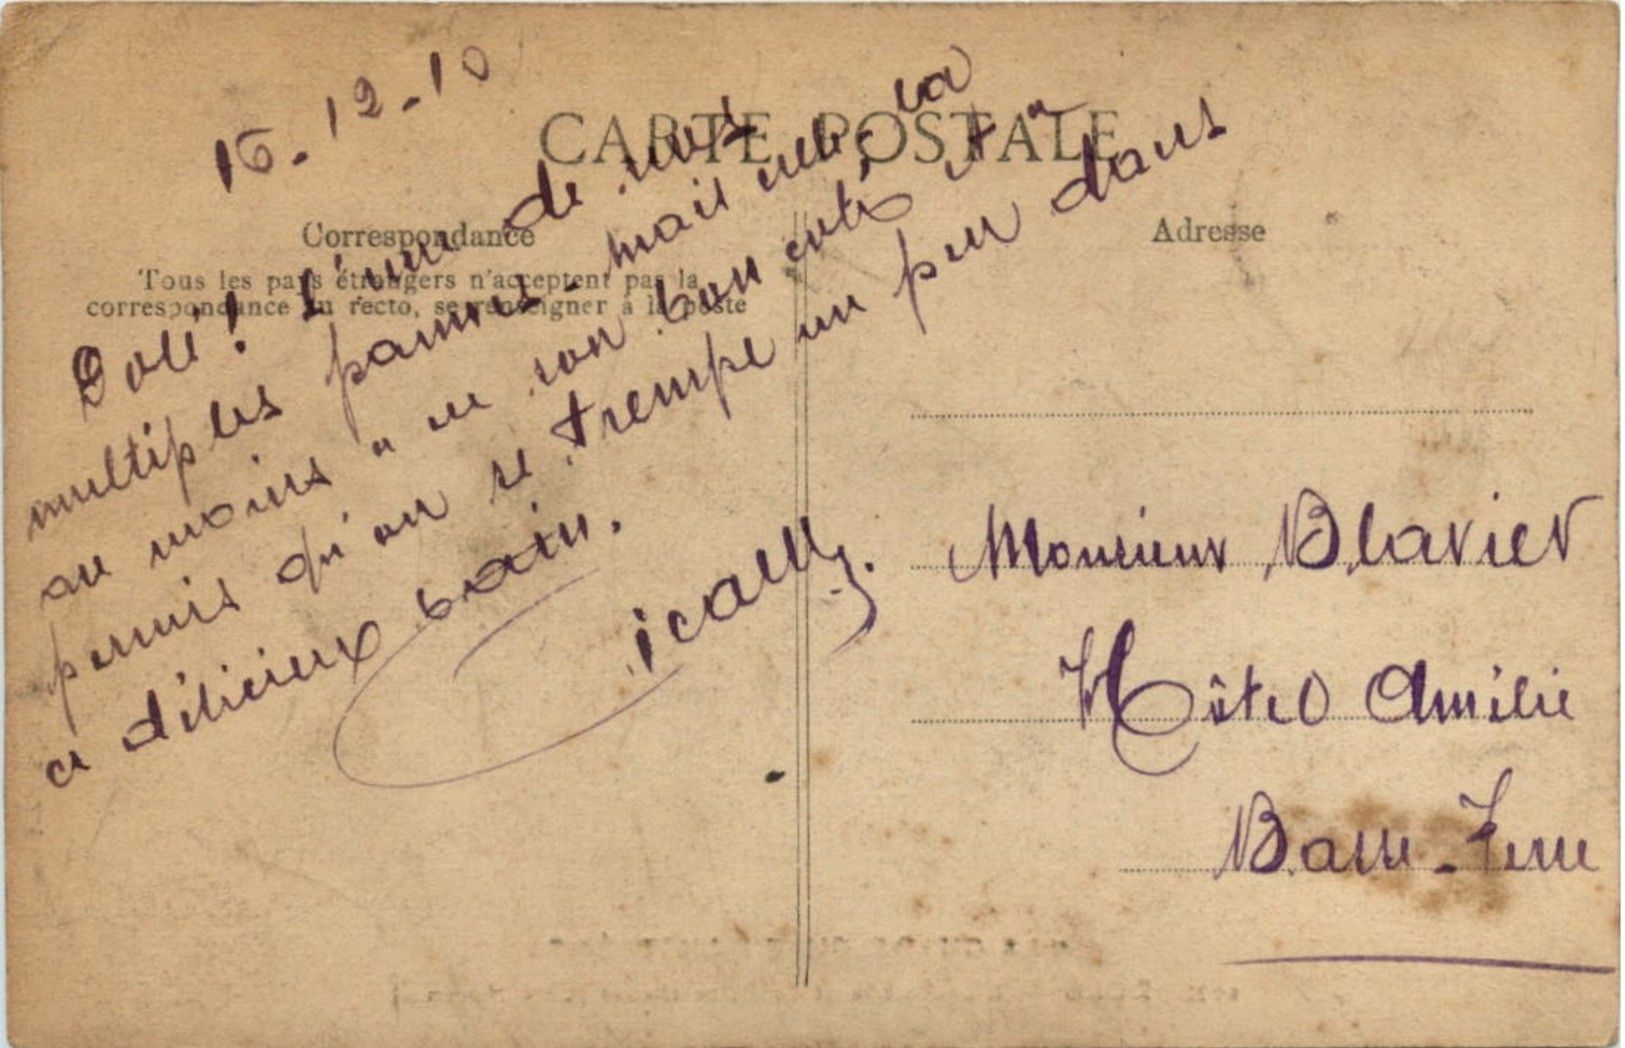 16-12-10
CARTE POSTALE
Correspondance
Tous les pays étrangers n'acceptent pas la
correspondance au recto, se renseigner à la poste
Dolé! L'une de nos
multiples pannes - mais celle-la
au moins "a son bon coté" et
permis qu'on se trempe un peu dans
ce délicieux bain.
Adresse
Monsieur Blavier
Hôtel Amélie
Basse-Terre